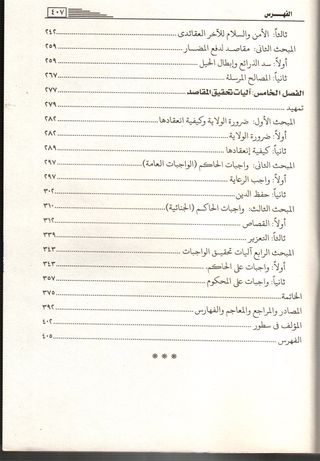 الفهرس ٤٠٧
ثالثاً: الأمن والسلام للآخر العقائدى ٢٤٢
المبحث الثانى: مقاصد لدفع المضار ٢٥٩
أولاً: سد الذرائع وإبطال الحيل ٢٥٩
ثانياً: المصالح المرسلة ٢٦٧
الفصل الخامس: آليات تحقيق المقاصد ٢٧٧
تمهيد
المبحث الأول: ضرورة الولاية وكيفية انعقادها ٢٨٢
أولاً: ضرورة الولاية ٢٨٢
ثانياً: كيفية إنعقادها ٢٨٩
المبحث الثانى: واجبات الحاكم (الواجبات العامة) ٢٩٧
أولاً: واجب الرعاية ٢٩٧
ثانياً: حفظ الدين ٣٠٢
المبحث الثالث: واجبات الحاكم (الجنائية) ٣١٠
أولاً: القصاص ٣١٢
ثالثاً: التعزير ٣٣٩
المبحث الرابع آليات تحقيق الواجبات ٣٤٣
أولاً: واجبات على الحاكم. ٣٤٣
ثانياً: واجبات على المحكوم ٣٥٧
الخاتمة ٣٧٥
المصادر والمراجع والمعاجم والفهارس ٣٩٢
المؤلف فى سطور ٤٠٢
الفهرس ٤٠٥
***